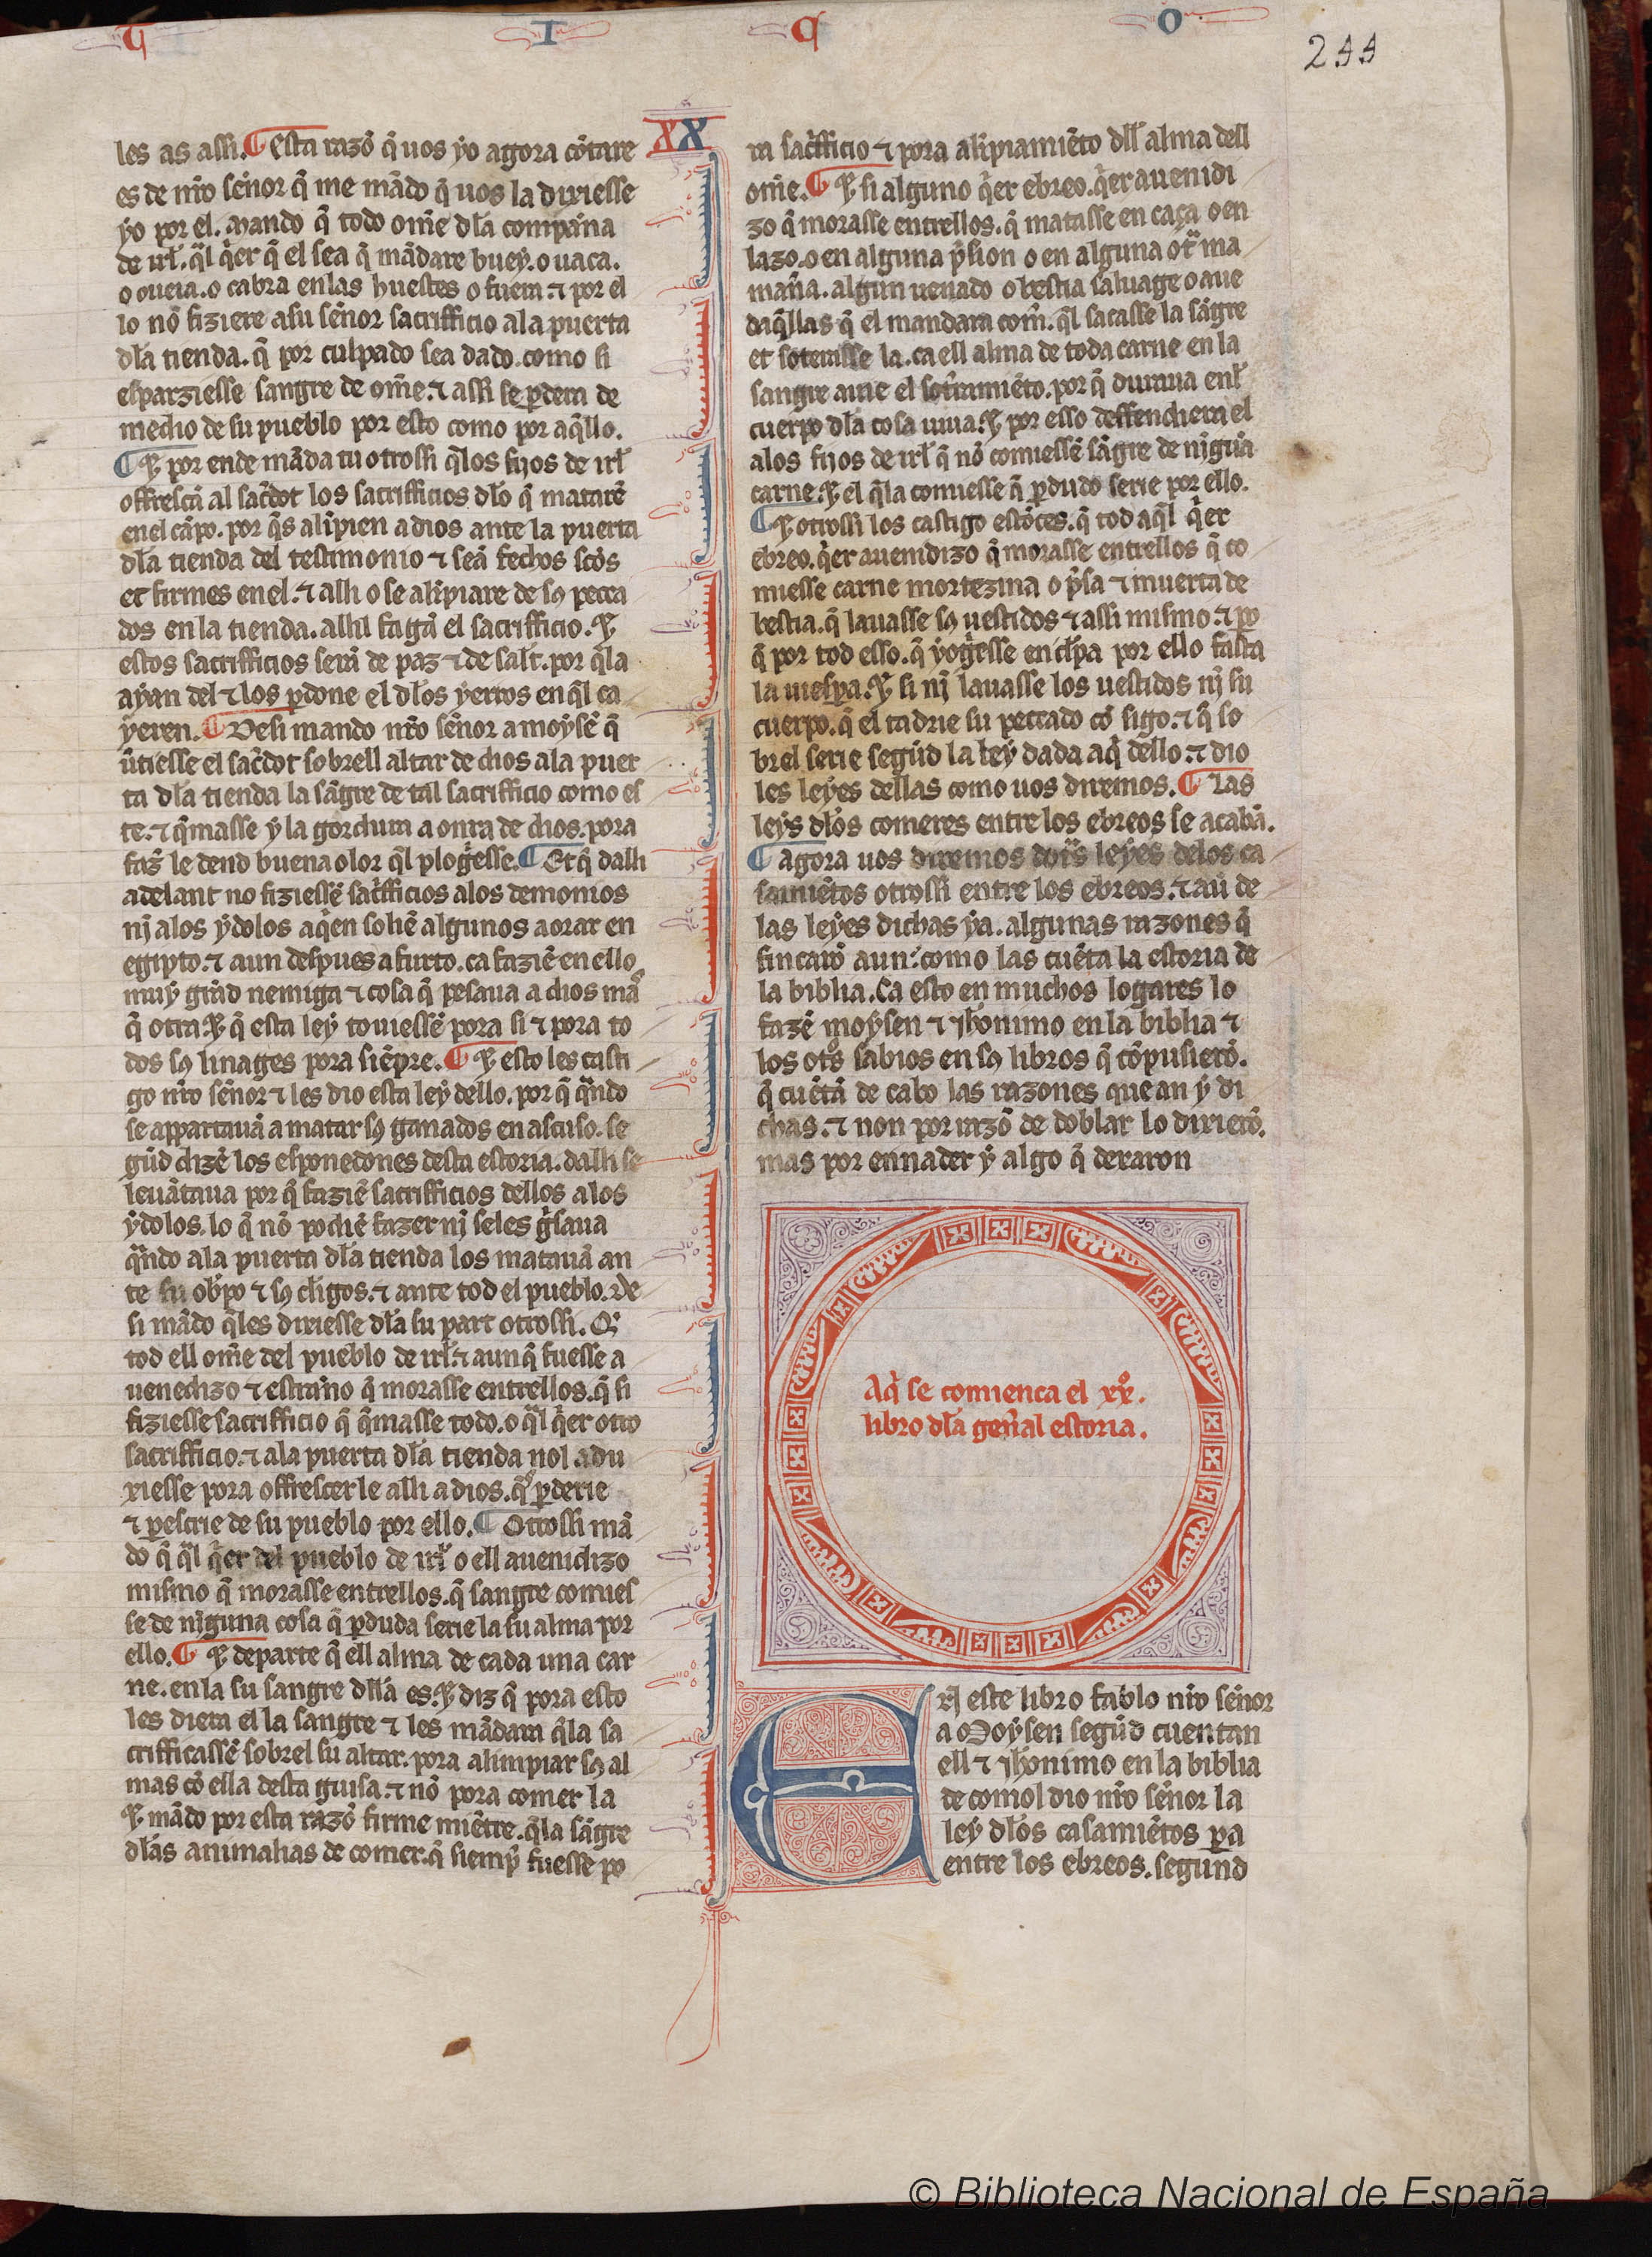 G I G O
244
XX
les as assi. ¶ Esta razõ q̃ uos yo agora cõtare
es de nr̃o sẽnor q̃ me mãdo q̃ uos la dixiesse
yo por el. Mando q̃ todo om̃e dl̃a compãna
de irl̃. q̃l q̃er q̃ el sea q̃ mãdare buey. o uaca.
o oueia. o cabra enlas huestes o fuera. ⁊ por el
lo nõ fiziere asu sẽnor sacrifficio ala puerta
dl̃a tienda. q̃ por culpado sea dado. como si
esparziesse sangre de om̃e. ⁊ assi se ꝑdera de
medio de su pueblo por esto como por aq̃llo.
¶ E por ende mãda tu otrossi q̃los fijos de irl̃
offrescã al sac̃dot los sacrifficios dl̃o q̃ matarẽ
enel cãpo. por q̃s alĩpien a dios ante la puerta
dl̃a tienda del testimonio ⁊ seã fechos sc̃os
et firmes en el. ⁊ alli o se alĩpiare de sꝯ pecca
dos en la tienda. alli fagã el sacrifficio. E
estos sacrifficios serã de paz ⁊ de salt. por q̃la
ayan del ⁊ los ꝑdone el dl̃os yerros en q̃l ca
yeren. ¶ Desi mando nr̃o sẽnor a moysẽ q̃
ũtiesse el sac̃dot sobrell altar de dios ala puer
ta dl̃a tienda la sãgre de tal sacrifficio como es
te. ⁊ q̃masse y la gordura a onra de dios. pora
faz̃ le dend buena olor q̃l plog̃esse. ¶ Et q̃ dalli
adelant no fiziessẽ sac̃fficios alos demonios
nĩ alos ydolos aq̃en soliẽ algunos aorar en
egipto. ⁊ aun despues a furto. ca faziẽ en ello
muy grãd nemiga ⁊ cosa q̃ pesaua a dios mas
q̃ otra. E q̃ esta ley touiessẽ pora si ⁊ pora to
dos sꝯ linages pora siẽpre. ¶ E esto les casti
go nr̃o sẽnor ⁊ les dio esta ley dello. por q̃ q̃ndo
se appartauã a matar sꝯ ganados en ascuso. se
gũd dizẽ los esponedores desta estoria. dalli se
leuãtaua por q̃ faziẽ sacrifficios dellos alos
ydolos. lo q̃ nõ podiẽ fazer nĩ seles g̃saua
q̃ndo ala puerta dl̃a tienda los matauã an
te su ob̃po ⁊ sꝯ cl̃igos. ⁊ ante tod el pueblo. De
si mãdo q̃les dixiesse dl̃a su part otrossi. Q̃
tod ell om̃e del pueblo de irl̃. ⁊ aunq̃ fuesse a
uenedizo ⁊ estrãno q̃ morasse entrellos. q̃ si
fiziesse sacrifficio q̃ q̃masse todo. o q̃l q̃er otro
sacrifficio. ⁊ ala puerta dl̃a tienda nol adu
xiesse pora offrescerle alli a dios. q̃ ꝑderie
⁊ ꝑescrie de su pueblo por ello. ¶ Otrossi mã
do q̃ q̃l q̃er del pueblo de irl̃ o ell auenidizo
mismo q̃ morasse entrellos. q̃ sangre comies
se de nĩguna cosa q̃ ꝑduda serie la su alma por
ello. ¶ E departe q̃ ell alma de cada una car
ne. en la su sangre dll̃a es. E diz q̃ pora esto
les diera el la sangre ⁊ les mãdara q̃la sa
crifficassẽ sobrel su altar. pora alimpiar sꝯ al
mas cõ ella desta guisa. ⁊ nõ pora comer la
E mãdo por esta razõ firme miẽtre. q̃la sãgre
dl̃as animalias de comer. q̃ siemp̃ fuesse po
ra sac̃fficio ⁊ pora alĩpiamiẽto dll̃ alma dell
om̃e. ¶ E si alguno q̃er ebreo. q̃er auenidi
zo q̃ morasse entrellos. q̃ matasse en caça o en
lazo. o en alguna p̃sion o en alguna ot̃ ma
mañ̃a. algun uenado o bestia saluage o aue
daq̃llas q̃ el mandara com̃. q̃l sacasse la sãgre
et soterrasse la. ca ell alma de toda carne en la
sangre aue el sot̃ramiẽto. por q̃ duraua enl̃
cuerpo dl̃a cosa uiua. E por esso deffendiera el
alos fijos de irl̃ q̃ nõ comiessẽ sãgre de nĩguã
carne. E el q̃la comiesse q̃ ꝑdudo serie por ello.
¶ E otrossi los castigo estõces. q̃ tod aq̃l q̃er
ebreo. q̃er auenidizo q̃ morasse entrellos q̃ co
miesse carne mortezina o p̃sa ⁊ muerta de
bestia. q̃ lauasse sꝯ uestidos ⁊ assi mismo. ⁊ po
q̃ por tod esso. q̃ yog̃esse en cl̃pa por ello fasta
la uiespa. E si nĩ lauasse los uestidos nĩ su
cuerpo. q̃ el tadrie su peccado cõ sigo. ⁊ q̃ so
brel serie segũd la ley dada aq̃ dello. ⁊ dio
les leyes dellas como uos diremos. ¶ Las
leys dl̃os comeres entre los ebreos se acabã.
¶ Agora uos diremos dot̃s leyes delos ca
samiẽtos otrossi entre los ebreos. ⁊ aũ de
las leyes dichas ya. algunas razones q̃
fincarõ aun. como las cuẽta la estoria de
la biblia. Ca esto en muchos logares lo
fazẽ moysen ⁊ Jheronimo en la biblia ⁊
los ot̃s sabios en sꝯ libros q̃ cõpusierõ.
q̃ cuẽtã de cabo las razones que an y di
chas. ⁊ non por razõ de doblar lo dixierõ.
mas por ennader y algo q̃ dexaron
Aq̃ se comiença el xx.º
libro dl̃a geñ̃al estoria.
EN este libro fablo nr̃o sẽnor
a Moysen segũd cuentan
ell ⁊ Jheronimo en la biblia
de comol dio nr̃o sẽnor la
ley dl̃os casamiẽtos pa
entre los ebreos. segund
© Biblioteca Nacional de España